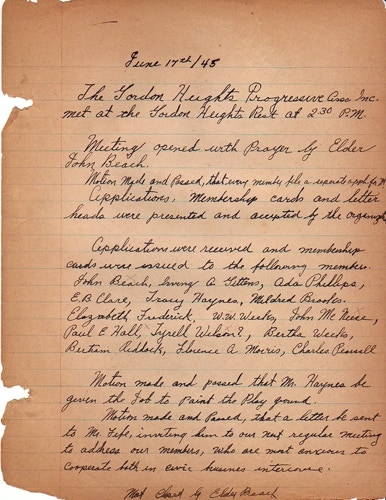 June 17th/45
The Gordon Heights Progressive Asso Inc.
met at the Gordon Heights Rest at 2:30 P.M.
Meeting opened with Prayer by Elder
John Beach.
Motion Made and Passed, that every member file a separate appli for M
Applications, Membership cards and letter
heads were presented and accepted by the
Applications were received and membership
cards was issued to the following members.
John Beach, Irving A Gittens, Ada Phillips,
E.B. Clare, Tracy Haynes, Mildred Brooks.
Elizabeth Frederick, W.W. Weeks, John McNeese,
Paul E Hall, Tyrell Wilson?, Bertha Weeks,
Bertram Riddock, Florence A Morris, Charles
Motion made and passed that Mr. Haynes be
given the Job to Paint the Play gound.
Motion made and Passed, that a letter be sent
to Mr. Fife, inviting him to our next regular meeting
to address our members, who are most anxious to
cooperate both in civic busines
Closed by Elder Beach